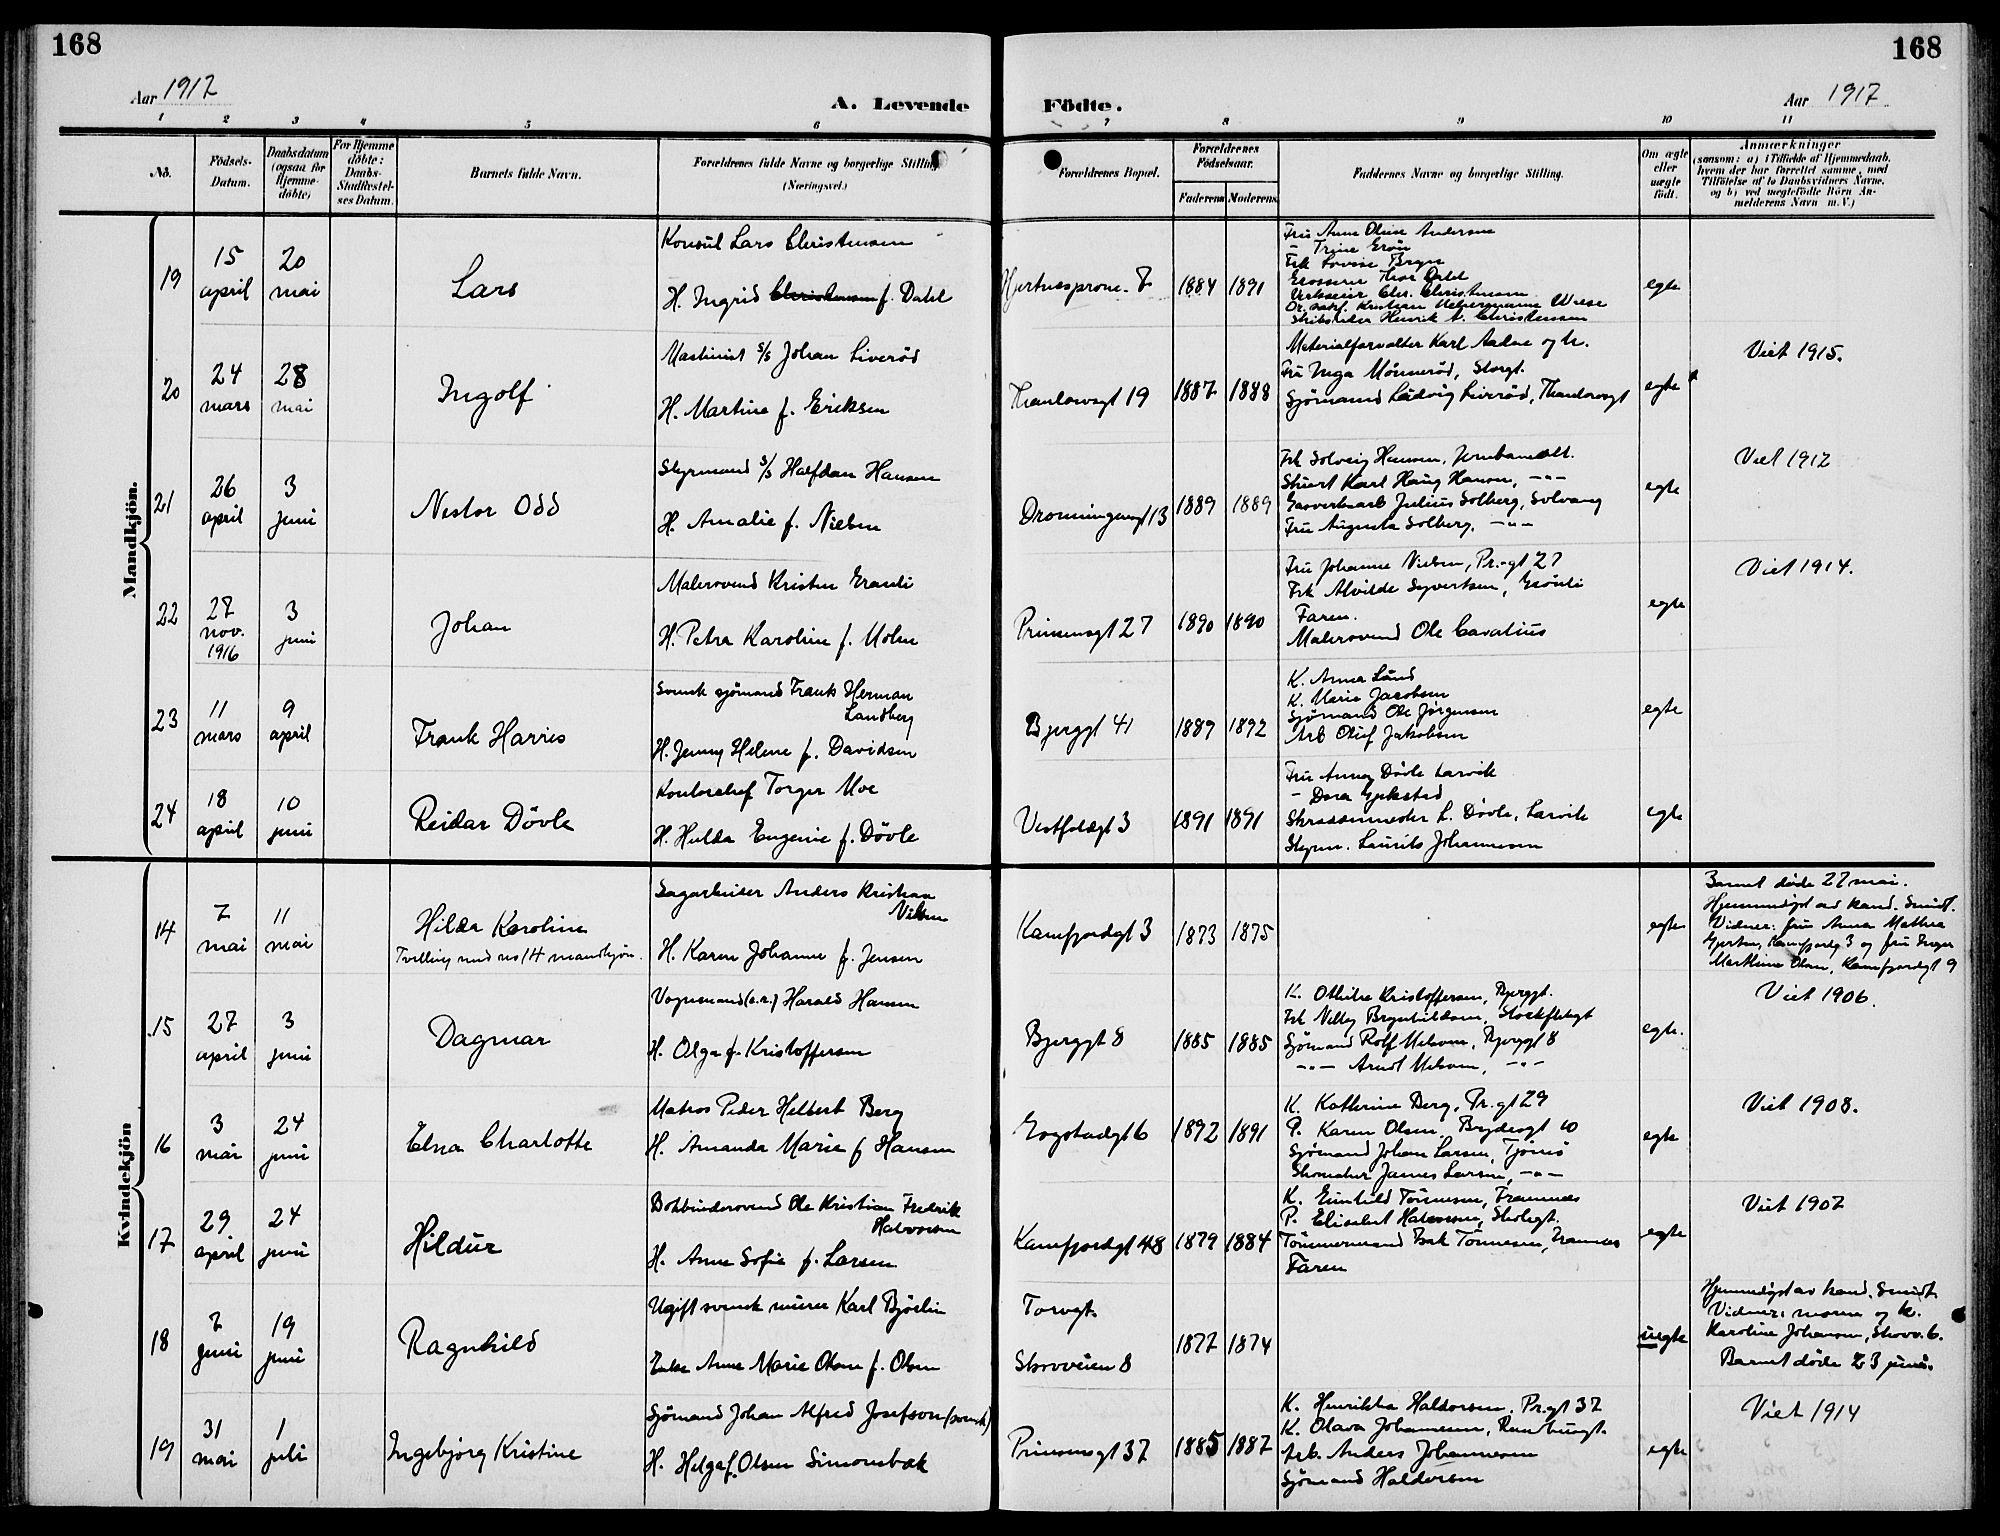 168
168
Aar 1917
A. Levende
Födte.
Aar 1917
1 2 3 4 5 6 7 8 9 10 11
No.
Födsels-Datum.
Daabsdatum (ogsaa for Hjemme-döbte)
For Hjemme döbte: Daabs-Stadfestel-ses Datum.
Barnets fulde Navn.
Forældrenes fulde Navne og borgerlige Stilling
(Næringsvei.)
Forældrenes Bopæl.
Forældrenes Födselsaar.
Faderens Moderens
Faddernes Navne og borgerlige Stilling.
Om ægte eller uægte födt.
Anmærkninger
(saasom: a) i Tilfælde af Hjemmedaab, hvem der har forrettet samme, med Tilföielse af to Daabsvidners Navne, og b) ved uægtefödte Börn An-melderens Navn m. V.)
Mandkjön.
19
15 april
20 mai
Lars
Konsul Lars Christensen
H. Ingrid Christensen f. Dahl
8
1884 1891
Fru Anne Oline Andersen
" Trine Grøn
Frk Lovise Bryn
Grosserer Thor Dahl
Verkseier Chr. Christensen
Skibsreder Henrik N. Christensen
egte
20
24 mars
28 mai
Ingolf
Maskinist s/s Johan Liverød
H. Martine f. Eriksen
Thaulowsgt 19
1887 1888
Materialforvalter Karl Aalve og h.
Fru Inga Mønnerød, Storgt.
Sjømand Ludvig Liverød, Thaulowsgt
egte
Viet 1915.
21
26 april
3 juni
Nestor Odd
Styrmand s/s Halfdan Hansen
H. Amalie f. Nielsen
Dronningensgt 13
1889 1889
Frk Solveig Hansen, Jernbanealt.
Stuert Karl Haug Hansen, -"-
Gasverksarb Julius Solberg, Solvang
Fru Augusta Solberg, -"-
egte
Viet 1912
22
27 nov. 1916
3 juni
Johan
Malersvend Kristen Granli
H. Petra Karoline f. Holm
Prinsensgt 27
1890 1890
Fru Johanne Nielsen, Pr.-gt 27
Frk Alvilde Syvertsen, Grønli
Faren.
Malersvend Ole Cavalius
egte
Viet 1914.
23
11 mars
9 april
Frank Harries
Svensk sjømand Frants Herman Landberg
H. Jenny Helene f. Davidsen
Bjerggt 41
1889 1892
K. Anna Lund
K. Marie Jacobsen
Sjømand Ole Jørgensen
Arb Oluf Jakobsen
egte
24
18 april
10 juni
Reidar Døvle
Kontorchef Torger Moe
H. Hulda Eugenie f. Døvle
Vestfoldgt 3
1891 1891
Fru Anney Døvle Larvik
" Dora Gjekstad
Skræddermester L. Døvle, Larvik
Styrm. Laurits Johannesen
egte
Kvindekjön
14
7 mai
11 mai
Hilda Karoline
Tvilling med no 14 mandkjøn.
Sagarbeider Anders Kristian Nilsen
H. Karen Johanne f. Jensen
Kamfjordgt 3
1873 1875
egte
Barnet døde 27 mai.
Hjemmedøpt av kand. Smidt.
Vidner: fru Anna Mathea
Gjertsen, Kamfjordg 3 og fru Inger
Marthine Olsen, Kamfjordgt 9
15
27 april
3 juni
Dagmar
Vognmand (e.r.) Harald Hansen
H. Olga f. Kristoffersen
Bjerggt 8
1885 1885
K. Othilie Kristoffersen, Bjerggt.
Frk Nelly Brynhildsen,
Sjømand Rolf Melsom, Bjerggt 8
-"- Arndt Melsom, -"-
egte.
Viet 1906.
16
3 mai
24 juni
Elna Charlotte
Matros Peder Helbert Berg
H. Amanda Marie f Hansen
Gogstadgt 6
1892 1891
K. Kathrine Berg, Pr.gt 29
P. Karen Olsen, Brydesgt 10
Sjømand Johan Larsen, Tjømø
Skomaker James Larsen, -"-
egte
Viet 1908.
17
29 april
24 juni
Hildur
Bokbindersvend Ole Kristian Fredrik Halvorsen
H. Anne Sofie f. Larsen
Kamfjordgt 48
1879 1884
K. Gunhild Tønnesen, Framnæs
P. Elisabet Halvorsen, Skolegt.
Tømmermand Tønnesen, Framnæs
Faren
egte
Viet 1907
18
7 juni
19 juni
Ragnhild
Ugift svensk murer Karl Bjørlin
Enke Anne Marie Olsen f. Olsen
Torvgt.
Skovveien 8
1877 1874
uegte
Hjemmedøpt av kand. Smidt
Vidner: moren og k.
Karoline Johansen, Skovv. 6.
Barnet døde 23 juni.
19
31 mai
1 juli
Ingebjørg Kristine
Sjømand Johan Alfred Josefson (svensk)
H. Helga f. Olsen Simonsbak
Prinsensgt 37
1885 1887
K. Henrikka Haldorsen, Pr.gt 37
K. Olava Johannesen,
Arb. Anders Johannesen
Sjømand Haldorsen
egte
Viet 1914